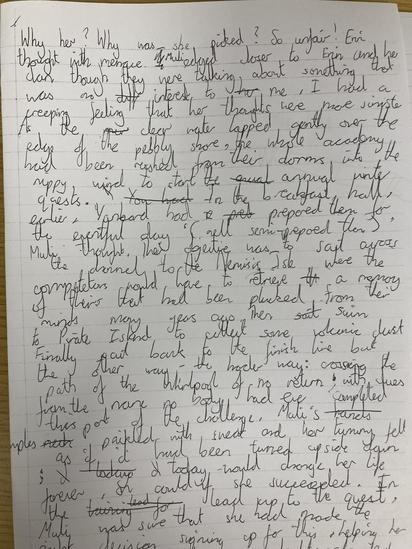 Why her? Why was she picked? So unfair! Erin
thought with menace. Muli edged closer to Erin and her
clan though they were talking about something that
was no interest to me, I had a
creeping feeling that her thoughts were more simple
As the clear water lapped gently over the
edge of the pebbly shore, the whole academy
had been rushed from their dorms into the
nippy, wind to start the annual
quests. You had In the breakfast hall,
earlier, had prepored them for
the eventful day (well semi-prepored them),
Muli thought, they objective was to sail across
the channel to the Nemisis Isle were the
would have to retrieve a memory
of theirs that had been plucked from their
minds many years ago, then swim
to Pirate Island to collect some volcanic dust
Finally sail back to the finish line but
the other way - the harder way: crossing the
path of the whirlpool of no return; with
from the name no body had completed
this part of the challenge, Muli's hands
with sweat and her tummy felt
as if it had been turned upside down
; today would change her life
forever, could if she succeeded. In
the lead up to the quest,
Muli was sure that she had made the
decision signing up for this, helping her